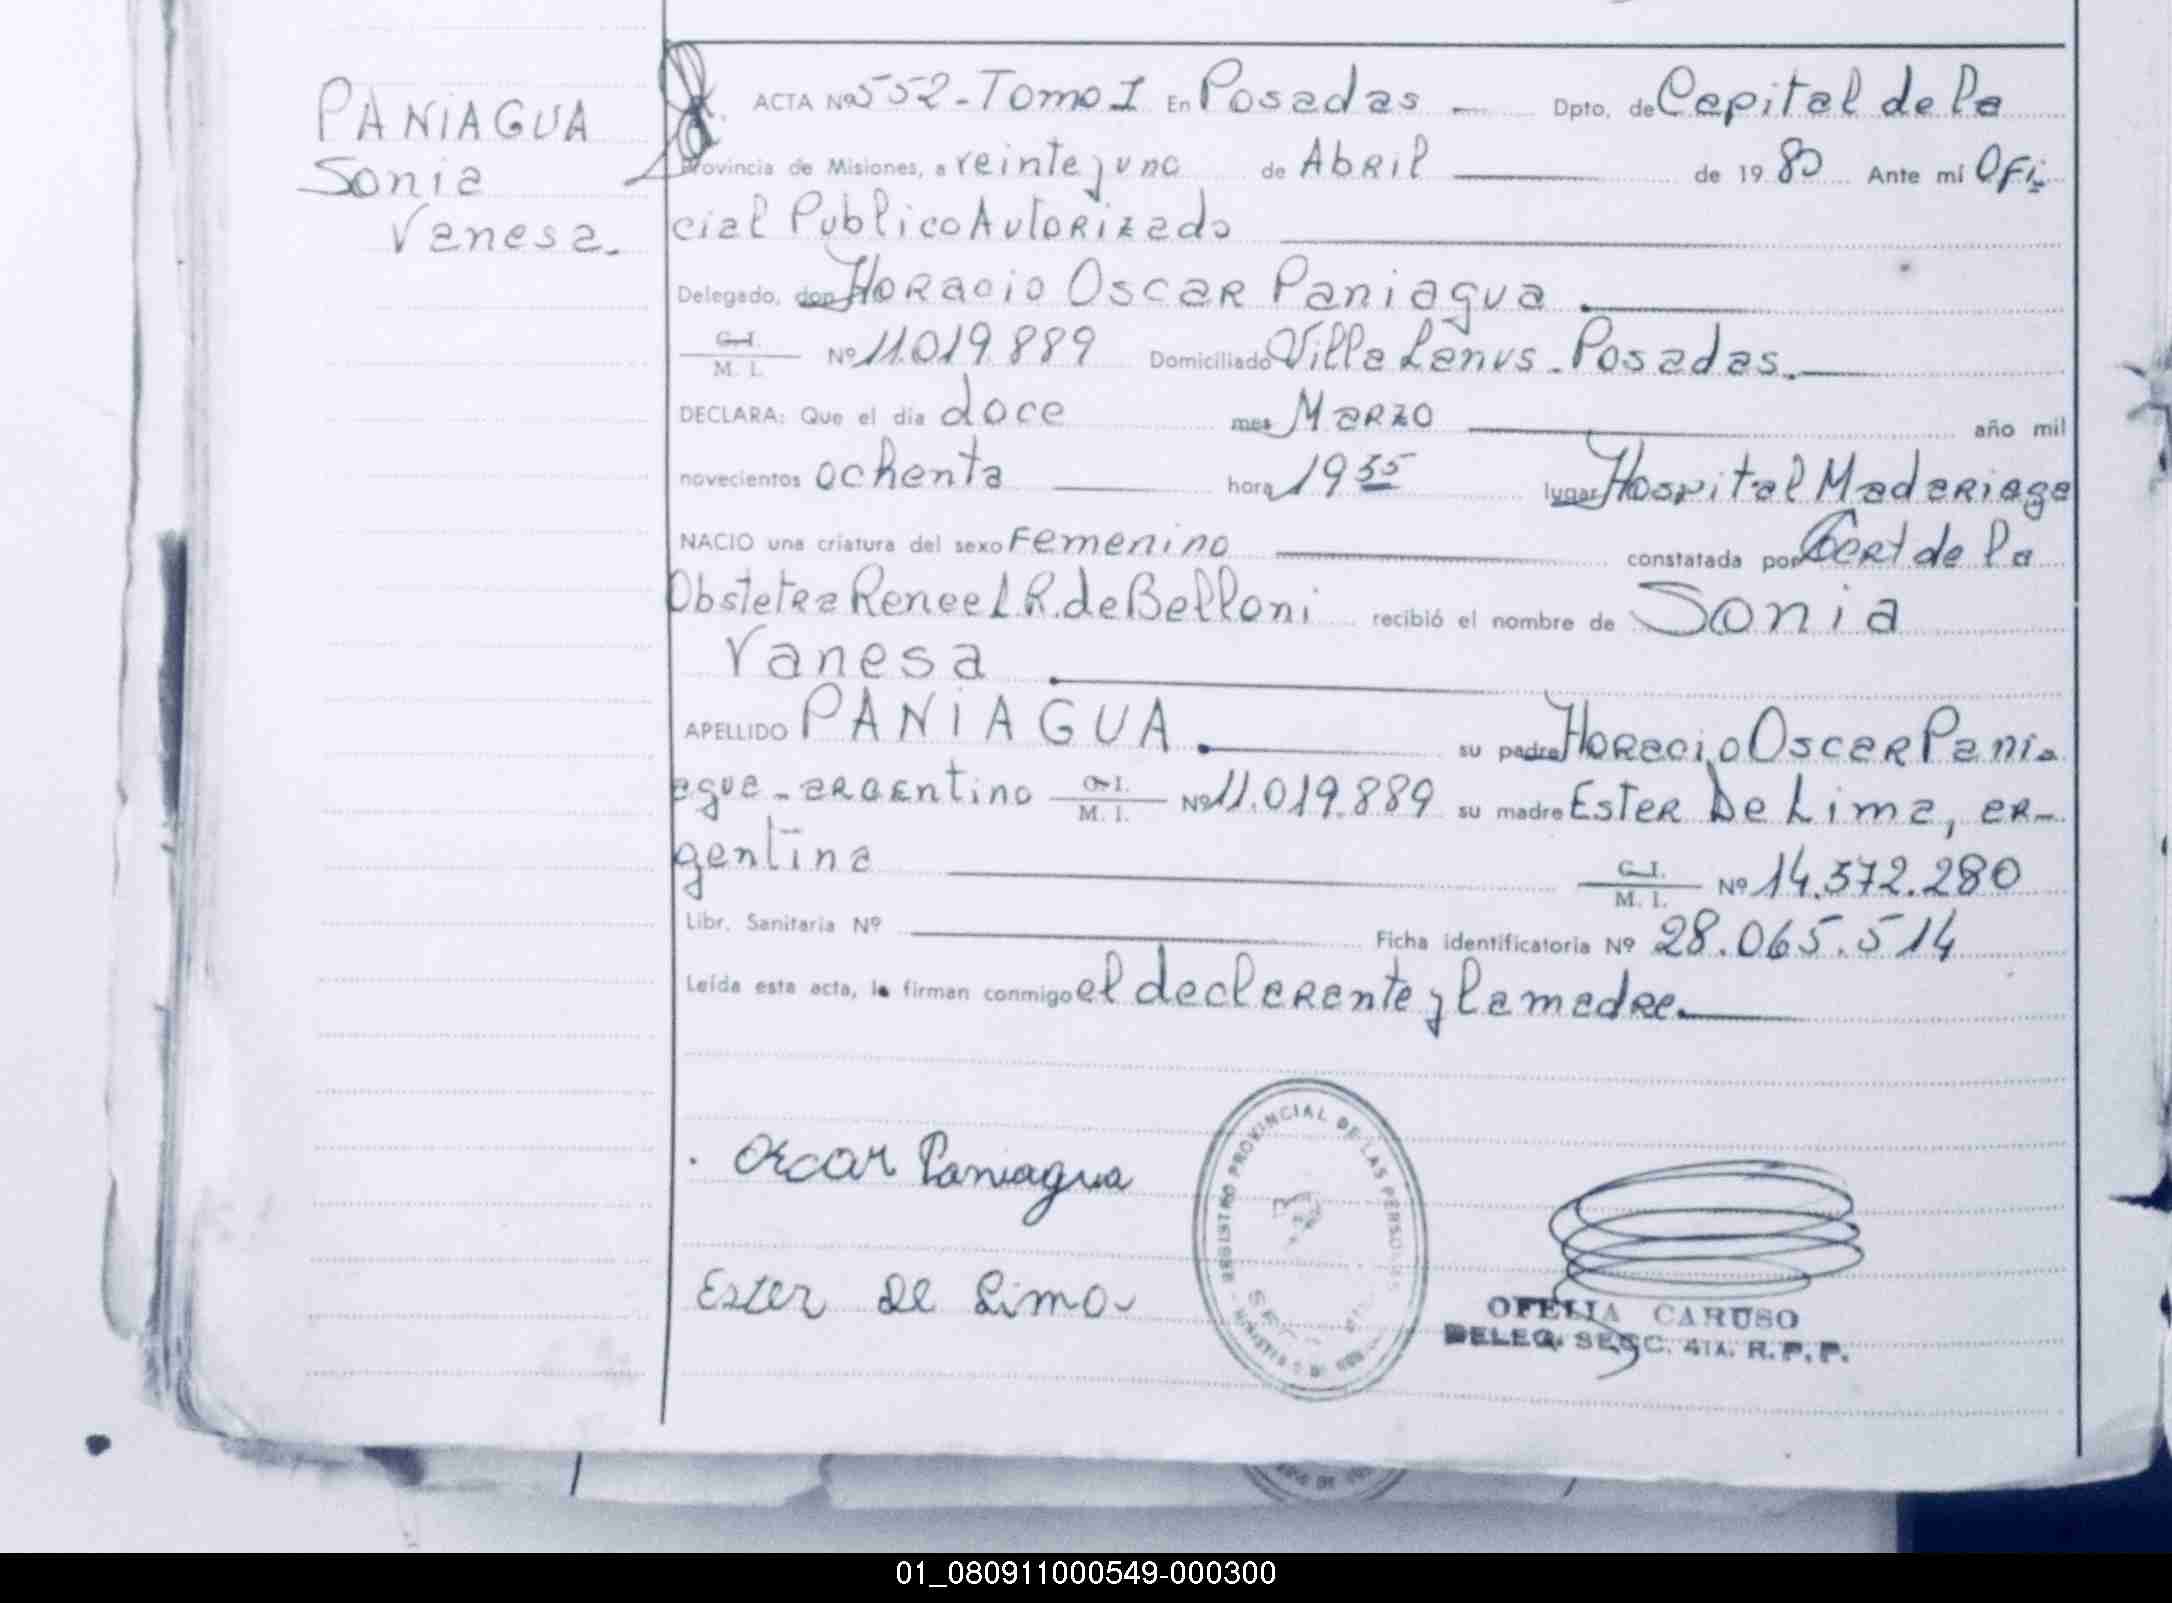 PANIAGUA
Sonia
Vanesa.
ACTA Nº 552 - Tomo I En Posadas Dpto. de Capital de la
Provincia de Misiones, a veinte y uno de Abril de 1980 Ante mi Ofi
cial Publico Autorizado
Delegado, don Horacio Oscar Paniagua
C. I. / M. I. Nº 11.019.889 Domiciliado Villa Lanus - Posadas.
DECLARA: Que el día doce mes Marzo año mil
novecientos ochenta hora 19 35 lugar Hospital Madariaga
NACIO una criatura del sexo Femenino constatada por Cert de la
Obstetra Renee L. R. de Belloni recibió el nombre de Sonia
Vanesa
APELLIDO PANIAGUA su padre Horacio Oscar Pani
agua - argentino C. I. / M. I. Nº 11.019.889 su madre Ester De Lima, ar-
gentina C. I. / M. I. Nº 14.572.280
Libr. Sanitaria Nº Ficha identificatoria Nº 28.065.514
Leída esta acta, la firman conmigo el declarante y la madre.
Oscar Paniagua
Ester De Lima
REGISTRO PROVINCIAL DE LAS PERSONAS
OFELIA CARUSO
DELEG. SECC. 4TA. R. P. P.
01_080911000549-000300